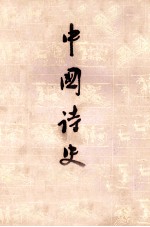 中國诗史